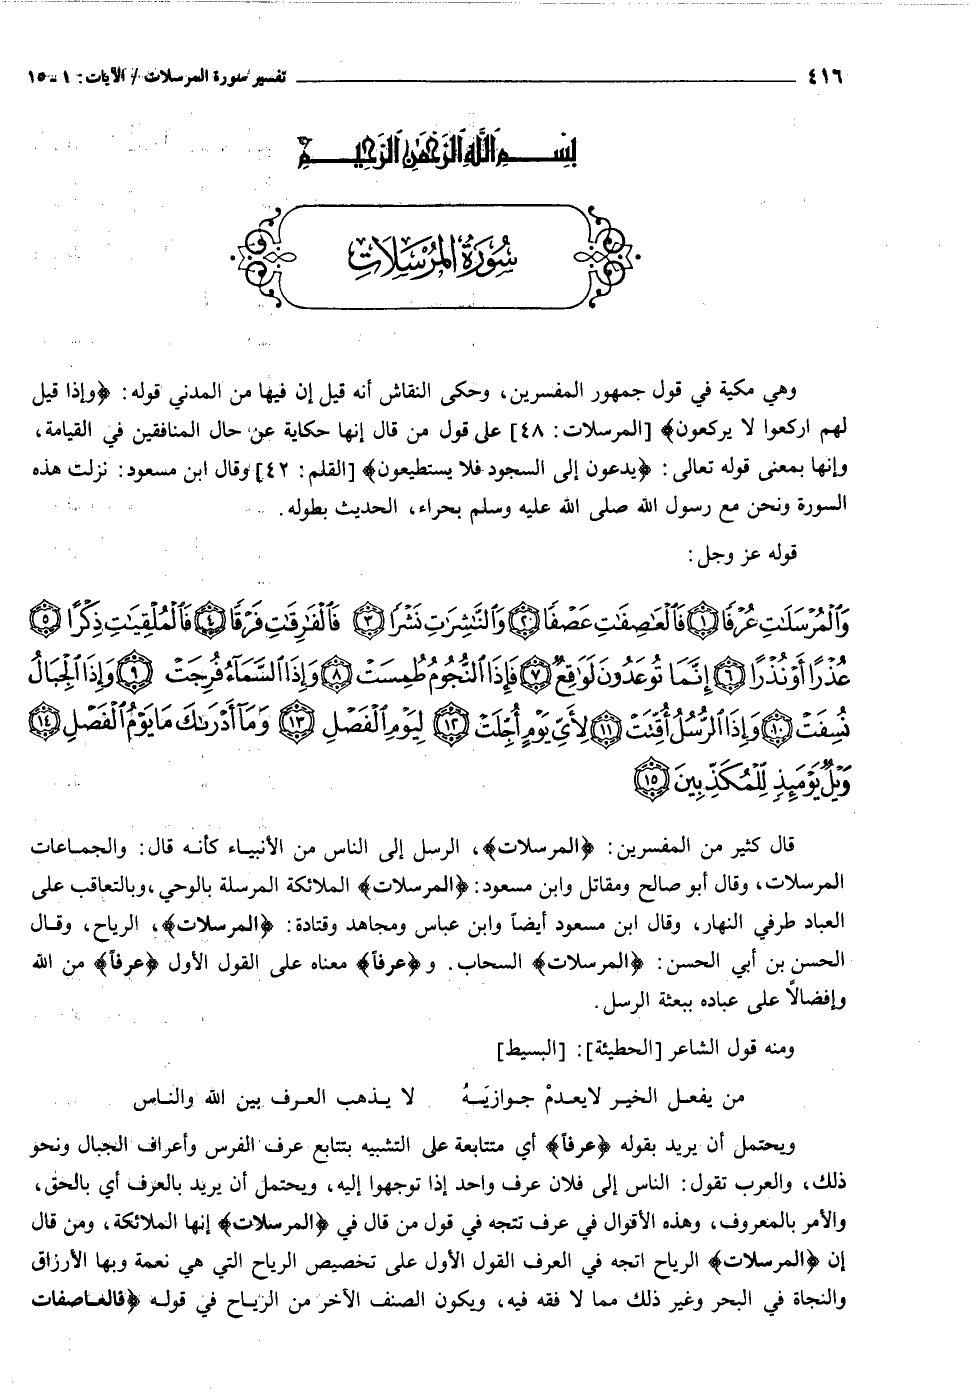 ٤١٦ تفسير سورة المرسلات / الآيات: ١ ـ ١٥
بِسْمِ اللَّهِ الرَّحْمَٰنِ الرَّحِيمِ
سُورَةُ المُرْسَلَاتِ
وهي مكية في قول جمهور المفسرين، وحكى النقاش أنه قيل إن فيها من المدني قوله: ﴿وإذا قيل
لهم اركعوا لا يركعون﴾ [المرسلات: ٤٨] على قول من قال إنها حكاية عن حال المنافقين في القيامة،
وإنها بمعنى قوله تعالى: ﴿يدعون إلى السجود فلا يستطيعون﴾ [القلم: ٤٢] وقال ابن مسعود: نزلت هذه
السورة ونحن مع رسول الله صلى الله عليه وسلم بحراء، الحديث بطوله.
قوله عز وجل:
وَالْمُرْسَلَاتِ عُرْفًا ﴿١﴾ فَالْعَاصِفَاتِ عَصْفًا ﴿٢﴾ وَالنَّاشِرَاتِ نَشْرًا ﴿٣﴾ فَالْفَارِقَاتِ فَرْقًا ﴿٤﴾ فَالْمُلْقِيَاتِ ذِكْرًا ﴿٥﴾
عُذْرًا أَوْ نُذْرًا ﴿٦﴾ إِنَّمَا تُوعَدُونَ لَوَاقِعٌ ﴿٧﴾ فَإِذَا النُّجُومُ طُمِسَتْ ﴿٨﴾ وَإِذَا السَّمَاءُ فُرِجَتْ ﴿٩﴾ وَإِذَا الْجِبَالُ
نُسِفَتْ ﴿١٠﴾ وَإِذَا الرُّسُلُ أُقِّتَتْ ﴿١١﴾ لِأَيِّ يَوْمٍ أُجِّلَتْ ﴿١٢﴾ لِيَوْمِ الْفَصْلِ ﴿١٣﴾ وَمَا أَدْرَاكَ مَا يَوْمُ الْفَصْلِ ﴿١٤﴾
وَيْلٌ يَوْمَئِذٍ لِّلْمُكَذِّبِينَ ﴿١٥﴾
قال كثير من المفسرين: ﴿المرسلات﴾، الرسل إلى الناس من الأنبياء كأنه قال: والجماعات
المرسلات، وقال أبو صالح ومقاتل وابن مسعود: ﴿المرسلات﴾ الملائكة المرسلة بالوحي، وبالتعاقب على
العباد طرفي النهار، وقال ابن مسعود أيضاً وابن عباس ومجاهد وقتادة: ﴿المرسلات﴾، الرياح، وقال
الحسن بن أبي الحسن: ﴿المرسلات﴾ السحاب. و﴿عرفاً﴾ معناه على القول الأول ﴿عرفاً﴾ من الله
وإفضالاً على عباده ببعثة الرسل.
ومنه قول الشاعر [الحطيئة]: [البسيط]
من يفعل الخير لايعدمْ جوازيَهُ لا يذهب العرف بين الله والناس
ويحتمل أن يريد بقوله ﴿عرفاً﴾ أي متتابعة على التشبيه بتتابع عرف الفرس وأعراف الجبال ونحو
ذلك، والعرب تقول: الناس إلى فلان عرف واحد إذا توجهوا إليه، ويحتمل أن يريد بالعرف أي بالحق،
والأمر بالمعروف، وهذه الأقوال في عرف تتجه في قول من قال في ﴿المرسلات﴾ إنها الملائكة، ومن قال
إن ﴿المرسلات﴾ الرياح اتجه في العرف القول الأول على تخصيص الرياح التي هي نعمة وبها الأرزاق
والنجاة في البحر وغير ذلك مما لا فقه فيه، ويكون الصنف الآخر من الرياح في قوله ﴿فالعاصفات